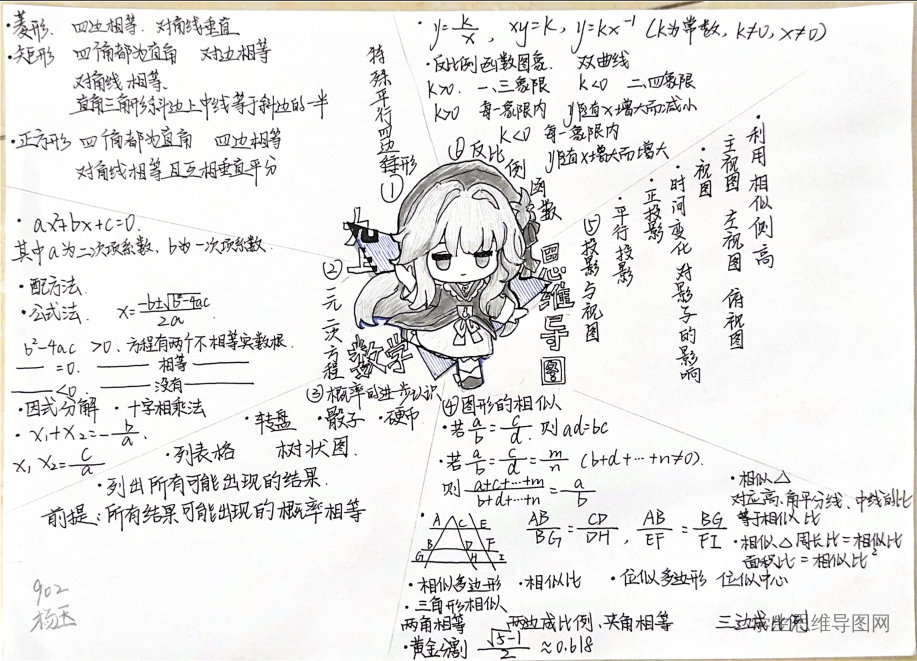 ·菱形. 四边相等. 对角线垂直
·矩形 四个角都为直角 对边相等
对角线相等.
直角三角形斜边上中线等于斜边的一半
·正方形 四个角都为直角 四边相等
对角线相等且互相垂直平分
特殊平行四边形
①
·ax²+bx+c=0.
其中a为二次项系数, b为一次项系数.
·配方法.
·公式法. x=\frac{-b±\sqrt{b²-4ac}}{2a}.
b²-4ac >0. 方程有两个不相等实数根.
—— =0. —— 相等 ——
—— <0. —— 没有 ——
·因式分解 ·十字相乘法
·x₁+x₂=-\frac{b}{a}.
x₁x₂=\frac{c}{a}
②一元二次方程
九上
数学
思维导图
③概率的进步认识
·转盘 ·骰子 ·硬币
·列表格 树状图.
·列出所有可能出现的结果.
前提:所有结果可能出现的概率相等
902
杨玉
④图形的相似
·若\frac{a}{b}=\frac{c}{d}. 则ad=bc
·若\frac{a}{b}=\frac{c}{d}=\frac{m}{n} (b+d+…+n≠0).
则\frac{a+c+…+m}{b+d+…+n}=\frac{a}{b}
A C E
B D F
G H I
\frac{AB}{BG}=\frac{CD}{DH}, \frac{AB}{EF}=\frac{BG}{FI}
·相似△
对应高.角平分线、中线的比
等于相似比
·相似△周长比=相似比
面积比=相似比²
·相似多边形 ·相似比 ·位似多边形 位似中心
·三角形相似
两角相等 两边成比例.夹角相等 三边成比例
·黄金分割 \frac{\sqrt{5}-1}{2}≈0.618
⑤投影与视图
·平行投影
·正投影
·时间变化对影子的影响
·视图
主视图 左视图 俯视图
·利用相似侧高
⑥反比例函数
·y=\frac{k}{x}, xy=k, y=kx⁻¹ (k为常数, k≠0, x≠0)
·反比例函数图象. 双曲线
k>0. 一、三象限 k<0 二、四象限
k>0 每一象限内 y随x增大而减小
k<0 每一象限内
y随x增大而增大
思维导图网